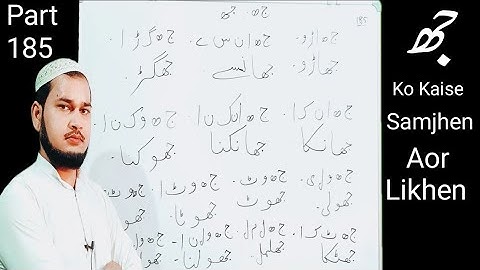 Part
185
جھ
Ko Kaise
Samjhen
Aor
Likhen
جھ. جھ
185
ج ھ ا ڑ و. ج ھ ا ن س ے. ج ھ گ ڑ ا
جھاڑو. جھانسے جھگڑ.
ج ھ ا ن ک ا. ج ھ ا ن ک ن ا. ج ھ و ک ن ا
جھانکا جھانکنا جھوکنا
ج ھ و ل ی. ج ھ و ٹ. ج ھ و ٹ ا.
جھولی. جھوٹ جھوٹا.
ج ھ ٹ ک ا. ج ھ ل م ل. ج ھ و ل ن ا.
جھٹکا جھلمل. جھولنا.